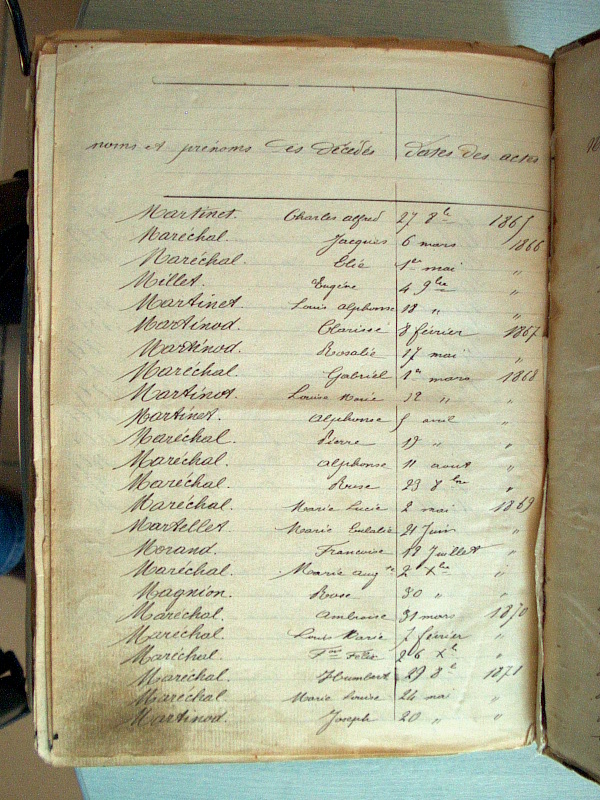 noms et prénoms des décédés dates des actes
Martinet. Charles alfred 27 8bre 1865
Maréchal. Jacques 6 mars 1866
Maréchal. Elie 1er mai "
Millet. Eugène 4 9bre "
Martinet Louis Alphonse 18 " "
Martinod. Clarisse 8 février 1867
Martinod. Rosalie 17 mai "
Maréchal. Gabriel 1er mars 1868
Martinot. Louise Marie 12 " "
Martinet. Alphonse 5 avril "
Maréchal. Pierre 17 " "
Maréchal. alphonse 11 aout "
Maréchal. Rose 23 8bre "
Maréchal. Marie Lucie 2 mai 1869
Martellet Marie Eulalie 21 Juin "
Morand. Francoise 12 Juillet "
Maréchal. Marie 2 Xbre "
Magnion. Rose 30 " "
Maréchal. Ambroise 31 mars 1870
Maréchal. Louis Marie 7 février "
Maréchal. Felix 26 Xbre "
Maréchal. Humbert 29 8bre 1871
Maréchal Marie Louise 24 mai "
Martinod. Joseph 20 " "